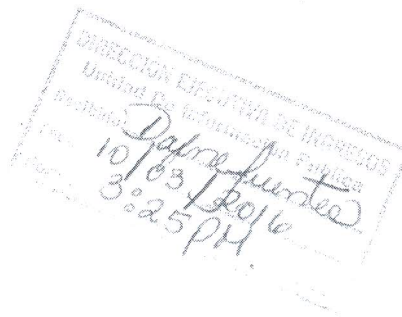 DIRECCION EJECUTIVA DE INGRESOS
Unidad De Información Publica
Recibido: Dafne fuentes
Fecha: 10/03/2016
Hora: 3:25 PM